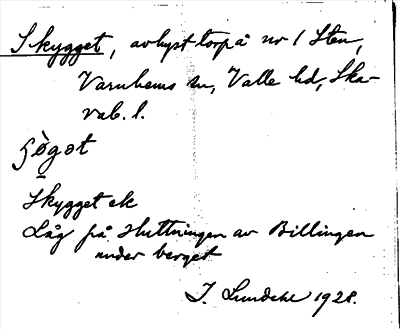 Skygget, avhyst torp å nr 1 Sten,
Varnhems sn, Valle hd, Ska-
rab. l.
Skygget ek
Låg på sluttningen av Billingen
under berget
J. Lundahl 1928.